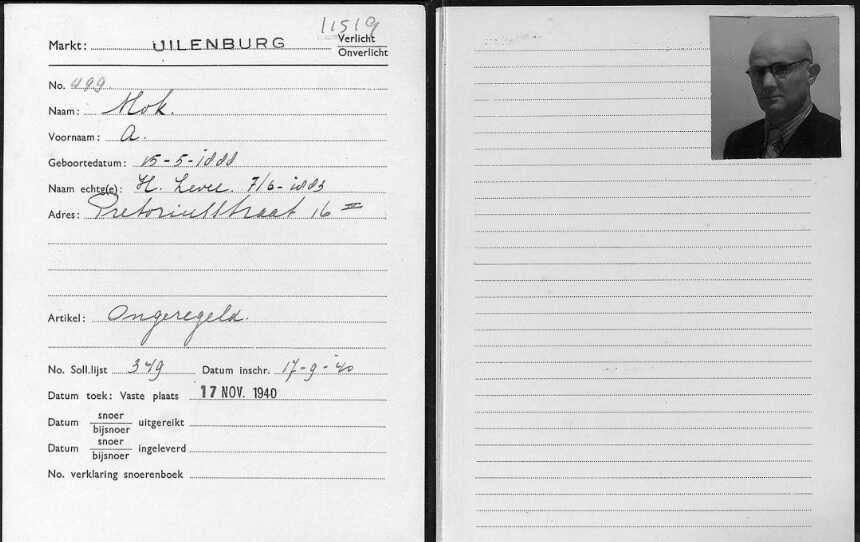 11519
Markt: UILENBURG Verlicht
Onverlicht
No. 499
Naam: Mok.
Voornaam: A.
Geboortedatum: 15-5-1888
Naam echtg(e): H. Levee. 7/6-1883
Adres: Pretoriusstraat 16 II
Artikel: Ongeregeld.
No. Soll.lijst 349 Datum inschr. 17-9-'40
Datum toek: Vaste plaats 17 NOV. 1940
Datum snoer
bijsnoer uitgereikt
Datum snoer
bijsnoer ingeleverd
No. verklaring snoerenboek